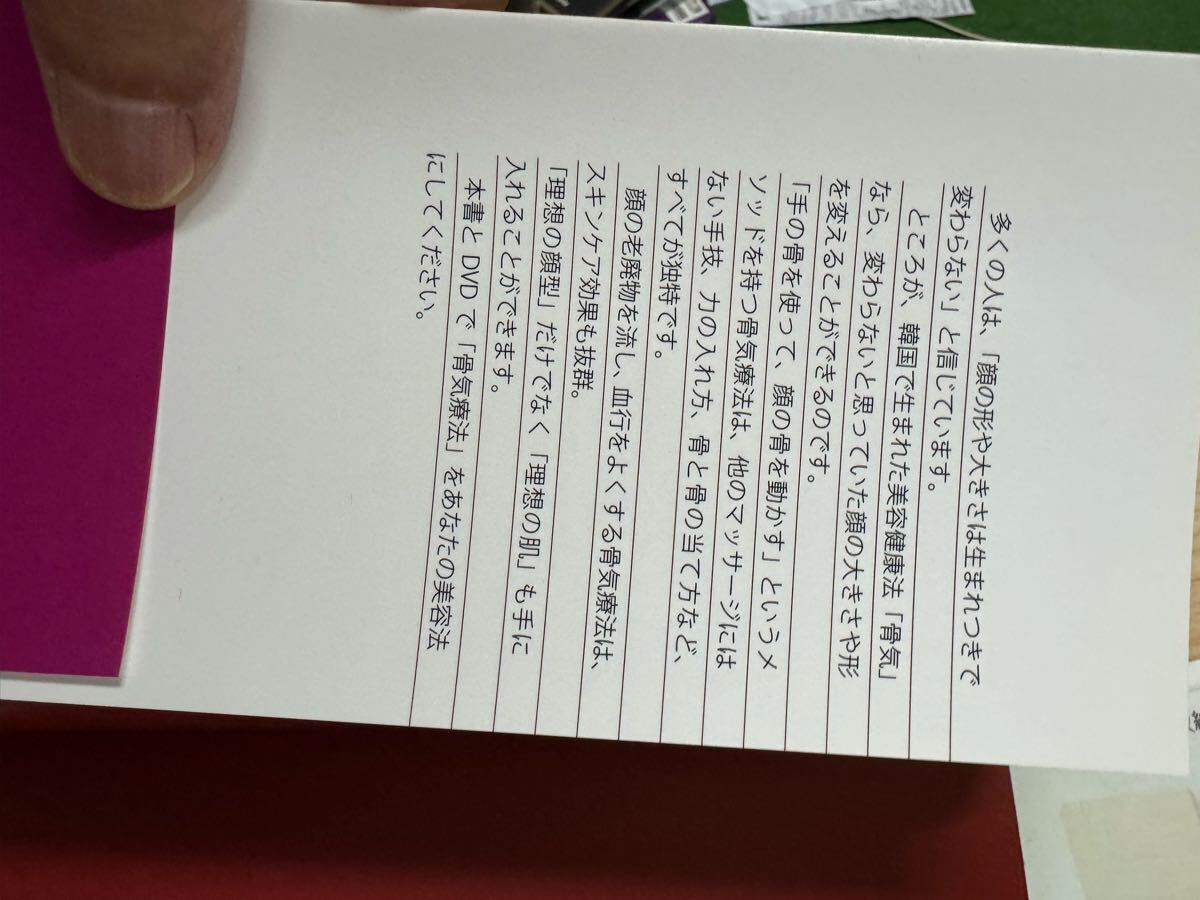 多くの人は、「顔の形や大きさは生まれつきで
変わらない」と信じています。
ところが、韓国で生まれた美容健康法「骨気」
なら、変わらないと思っていた顔の大きさや形
を変えることができるのです。
「手の骨を使って、顔の骨を動かす」というメ
ソッドを持つ骨気療法は、他のマッサージには
ない手技、力の入れ方、骨と骨の当て方など、
すべてが独特です。
顔の老廃物を流し、血行をよくする骨気療法は、
スキンケア効果も抜群。
「理想の顔型」だけでなく「理想の肌」も手に
入れることができます。
本書と DVD で「骨気療法」をあなたの美容法
にしてください。